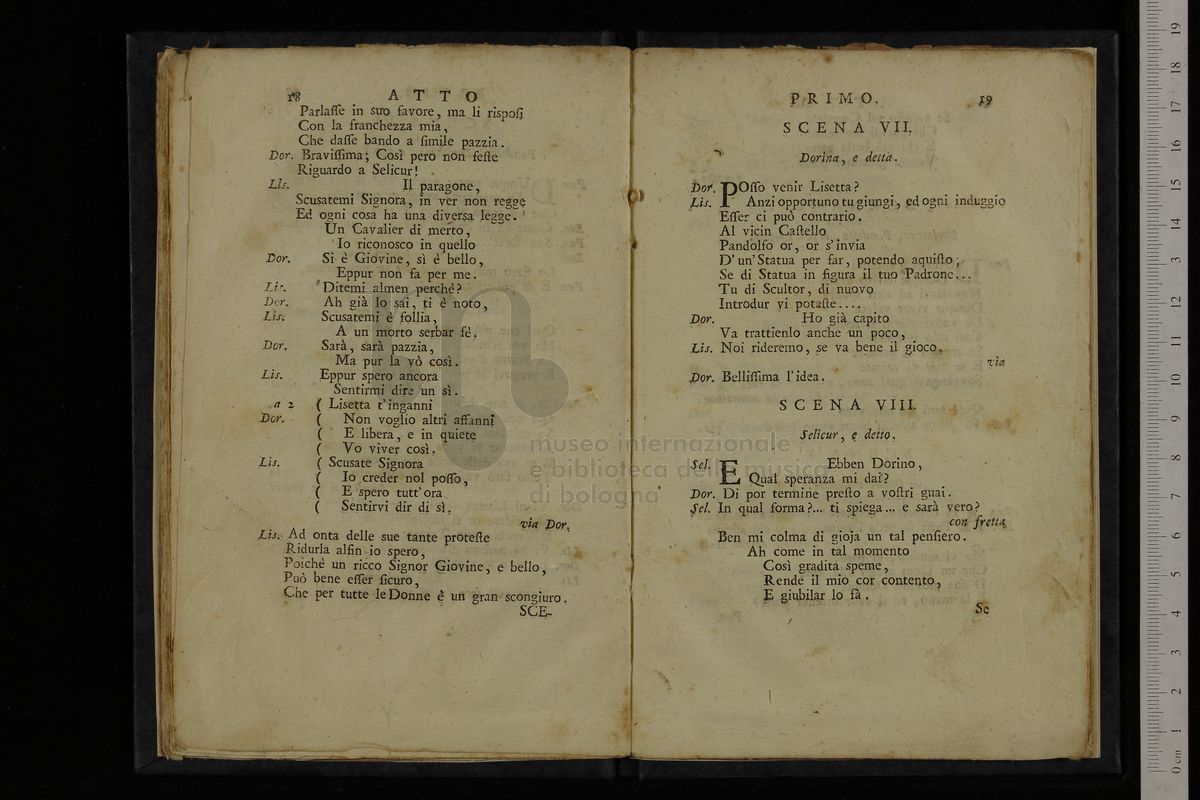 18 ATTO
Parlaſſe in suo favore, ma li riſpoſi
Con la franchezza mia,
Che daſſe bando a ſimile pazzia.
Dor. Braviſſima; Così pero non feſte
Riguardo a Selicur!
Lis. Il paragone,
Scusatemi Signora, in ver non regge
Ed ogni cosa ha una diversa legge.
Un Cavalier di merto,
Io riconosco in quello
Dor. Si è Giovine, sì è bello,
Eppur non fa per me.
Lis. Ditemi almen perchè?
Dor. Ah già lo sai, ti è noto,
Lis. Scusatemi è follia,
A un morto serbar fè.
Dor. Sarà, sarà pazzia,
Ma pur la vò così.
Lis. Eppur spero ancora
Sentirmi dire un sì.
a 2 ( Lisetta t'inganni
Dor. ( Non voglio altri affanni
( E libera, e in quiete
( Vo viver così.
Lis. ( Scusate Signora
( Io creder nol poſſo,
( E spero tutt'ora
( Sentirvi dir di sì.
via Dor.
Lis. Ad onta delle sue tante proteſte
Ridurla alfin io spero,
Poichè un ricco Signor Giovine, e bello,
Può bene eſſer ſicuro,
Che per tutte le Donne è un gran scongiuro.
SCE-
PRIMO. 19
SCENA VII.
Dorina, e detta.
Dor. POſſo venir Lisetta?
Lis. Anzi opportuno tu giungi, ed ogni induggio
Eſſer ci può contrario.
Al vicin Caſtello
Pandolfo or, or s'invia
D'un'Statua per far, potendo aquiſto;
Se di Statua in figura il tuo Padrone...
Tu di Scultor, di nuovo
Introdur vi potaſte....
Dor. Ho già capito
Va trattienlo anche un poco,
Lis. Noi rideremo, se va bene il gioco.
via
Dor. Belliſſima l'idea.
SCENA VIII.
Selicur, e detto.
Sel. E Ebben Dorino,
Qual speranza mi dai?
Dor. Di por termine preſto a voſtri guai.
Sel. In qual forma?... ti spiega... e sarà vero?
con fretta
Ben mi colma di gioja un tal penſiero.
Ah come in tal momento
Così gradita speme,
Rende il mio cor contento,
E giubilar lo fà.
Se
museo internazionale
e biblioteca della musica
di bologna
0 cm 1 2 3 4 5 6 7 8 9 10 11 12 13 14 15 16 17 18 19